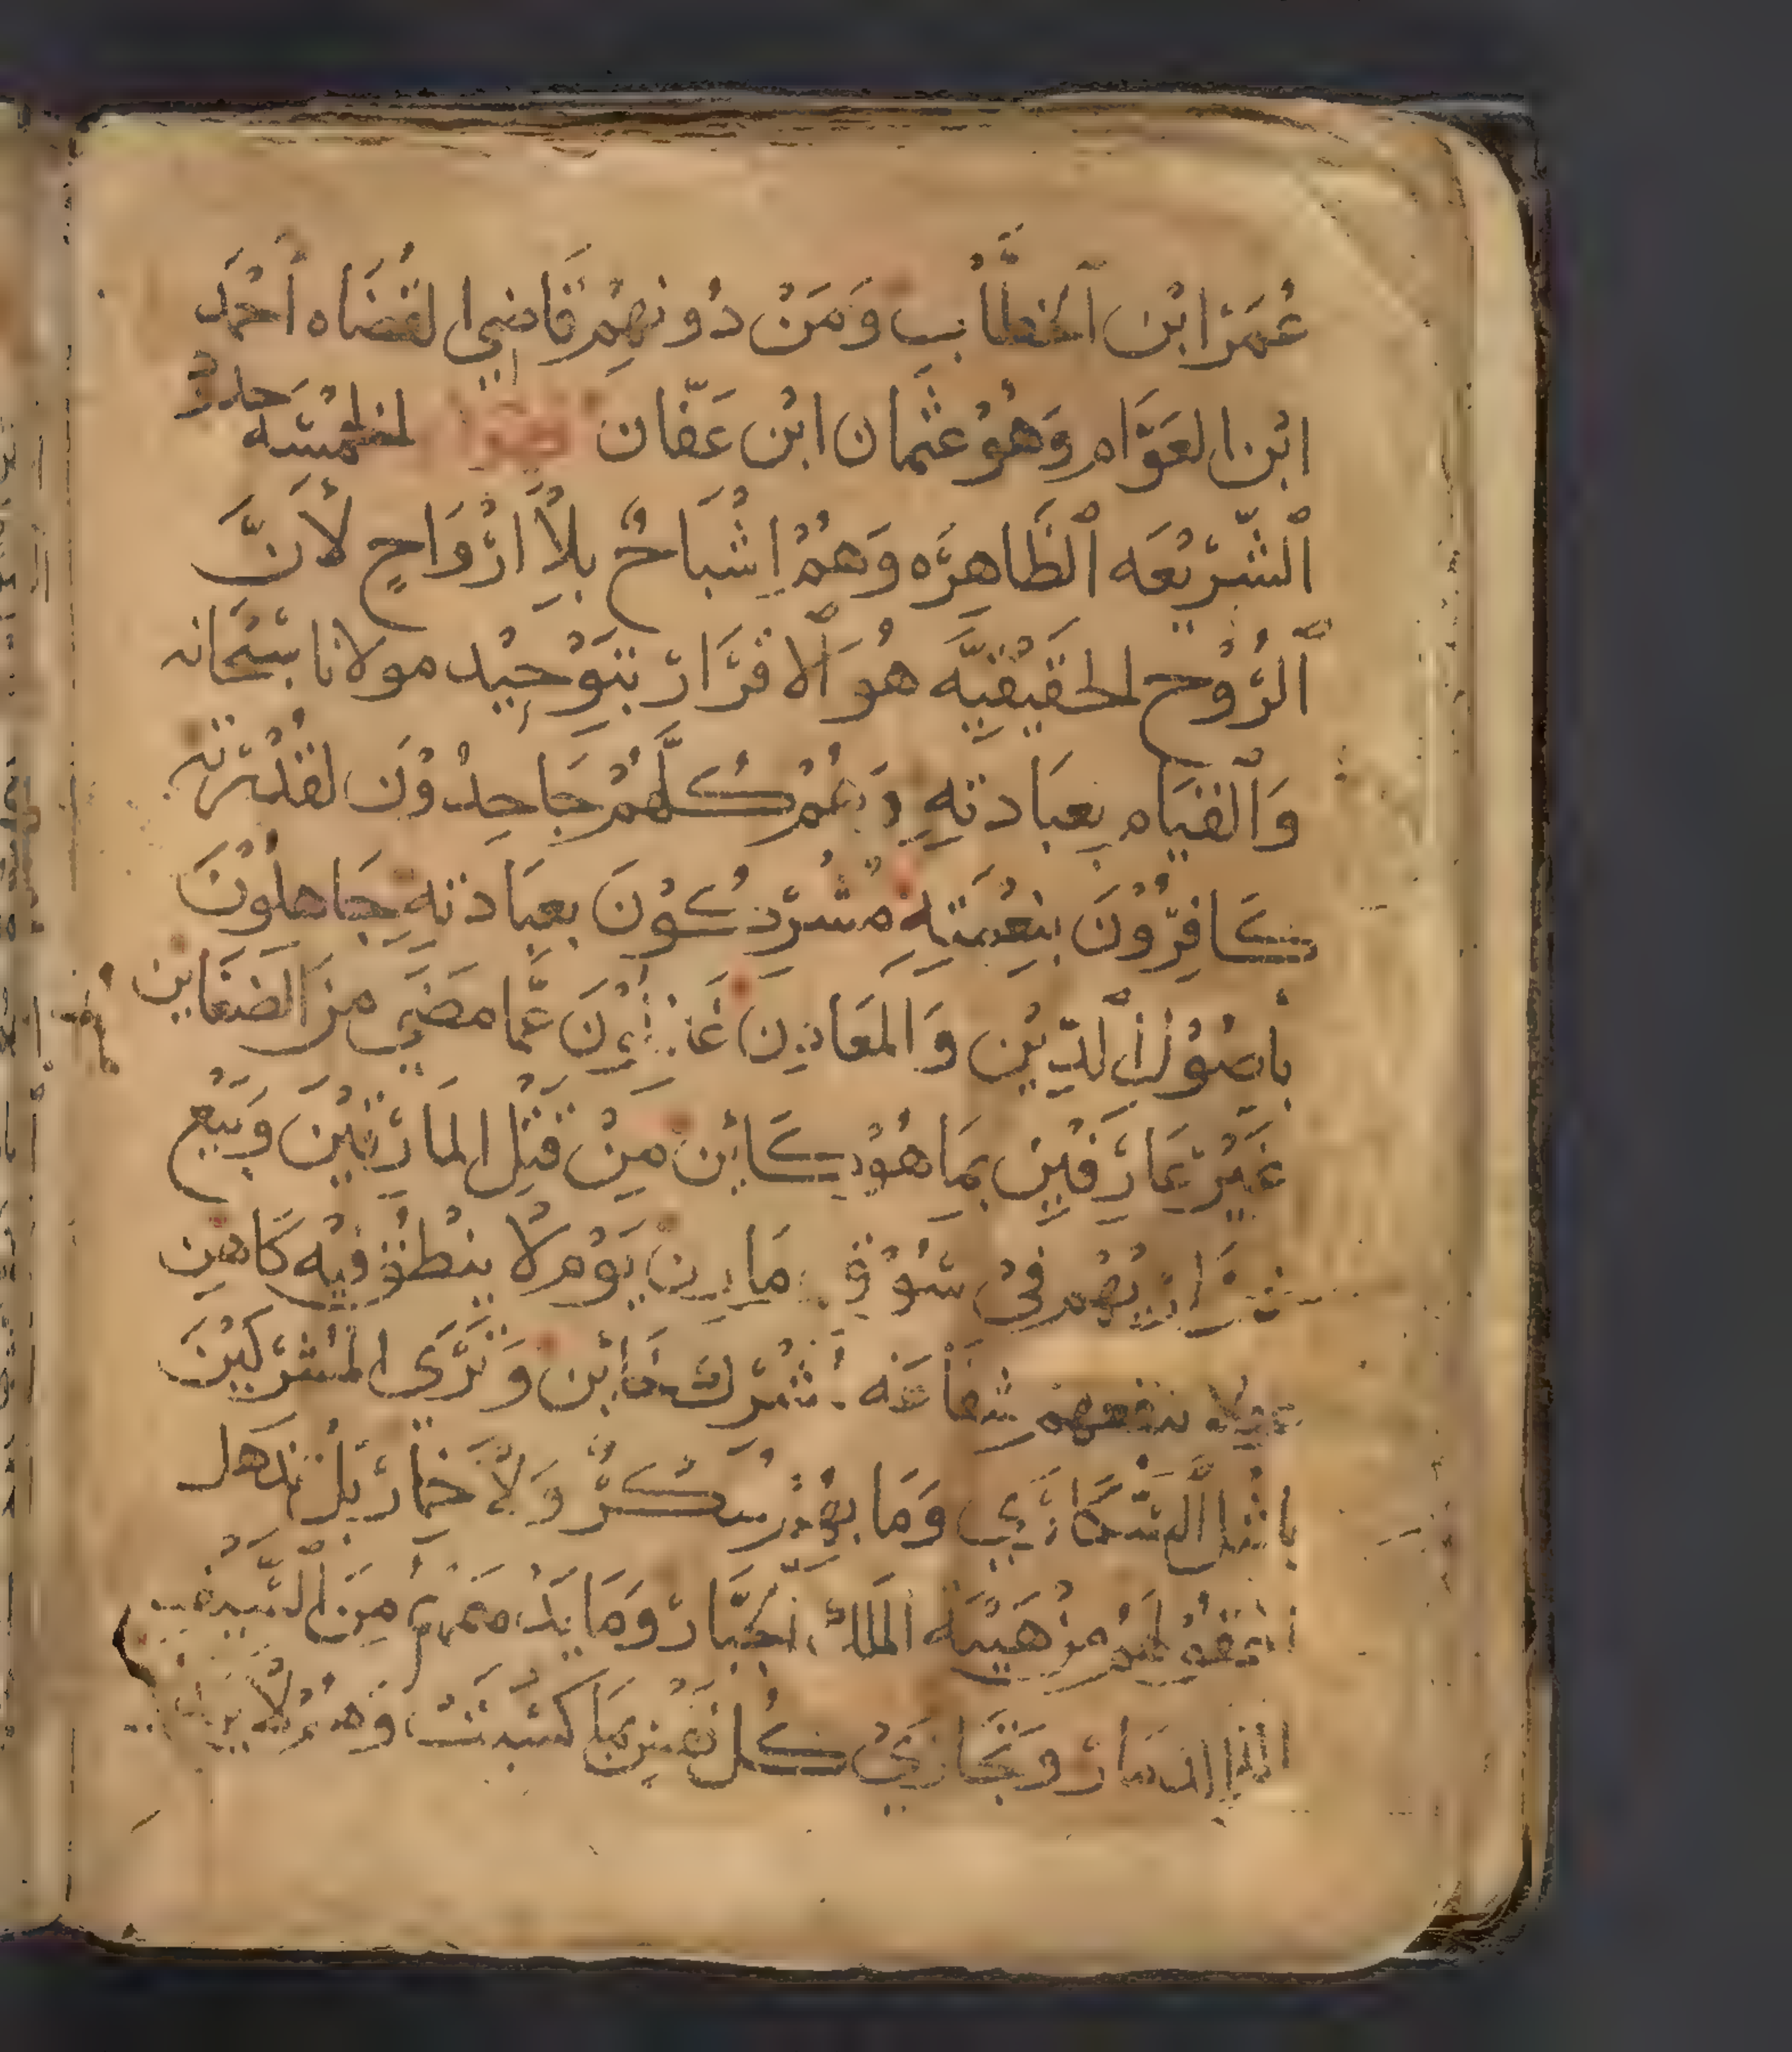 عُمَرْ ابْن ٱلخَطَّاب وَمَنْ دُونهِمْ قَاضِي القُضَاه أحْمَد
ابْن العَوَّام وَهُوْ عثمان ابْن عَفّان الخمْسَه حدُدْ
ٱلشَّرْيْعَه ٱلظَاهِرَه وَهُمْ اشْبَاحٌ بِلاَ ارْوَاحٍ لأنَّ
ٱلرُّوْح الحَقيْقِيَّه هُوَ ٱلاقْرَارْ بتَوْحِيْد مولانا سبْحَانه
وَٱلقيَام بِعبَادتهِ وَهُمْ كُلّهُمْ جَاحِدُوْن لقُدْرَته
كَافِرُوْنَ بنِعْمَتهِ مُشْرْكُوْنَ بعِبَادتهِ جَاهِلُوْنَ
بأصُوْل ٱلدِّيْن وَالمَعَادِن عَمَّا مَضَي منَ الضغَاين
غَيْرْ عَارْفِيْن بِمَا هُوْ كَائِن مِنْ قَتْل المَارْقيْنَ وَبَيْع
فيْ سُوْق مَادِن يَوْم لا ينْطق فيْه كَاهِن
وَلا تنْفعهمْ شفَاعَه وَتَرَى المُشْرْكيْنَ
وَمَا بهِمْ سُكْرٌ وَلاَ خمَارْ بَلْ تدهل
مِنْ هَيْبَة المَلِك ٱلجَبَّارْ وَمَا مِنَ ٱلسَّيْف
وَتجَازَيْ كُل نَفْس بِمَا كسَبَتْ وَهُمْ لاَ